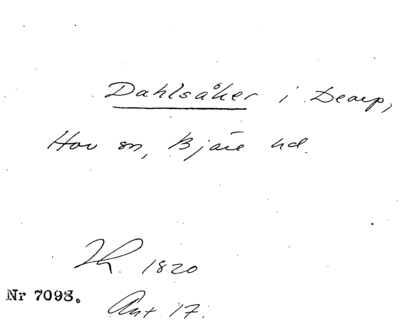 Dahlsåker i Dearp,
Hov sn, Bjäre hd.
Th. 1820
Nr 7093.
Ant. 17.